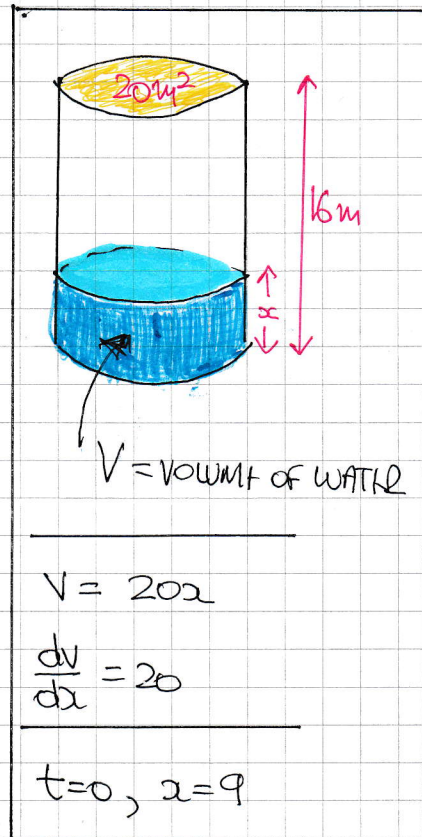 20m²
16m
x
V = VOLUME OF WATER
V = 20x
dv/dx = 20
t=0, x=9